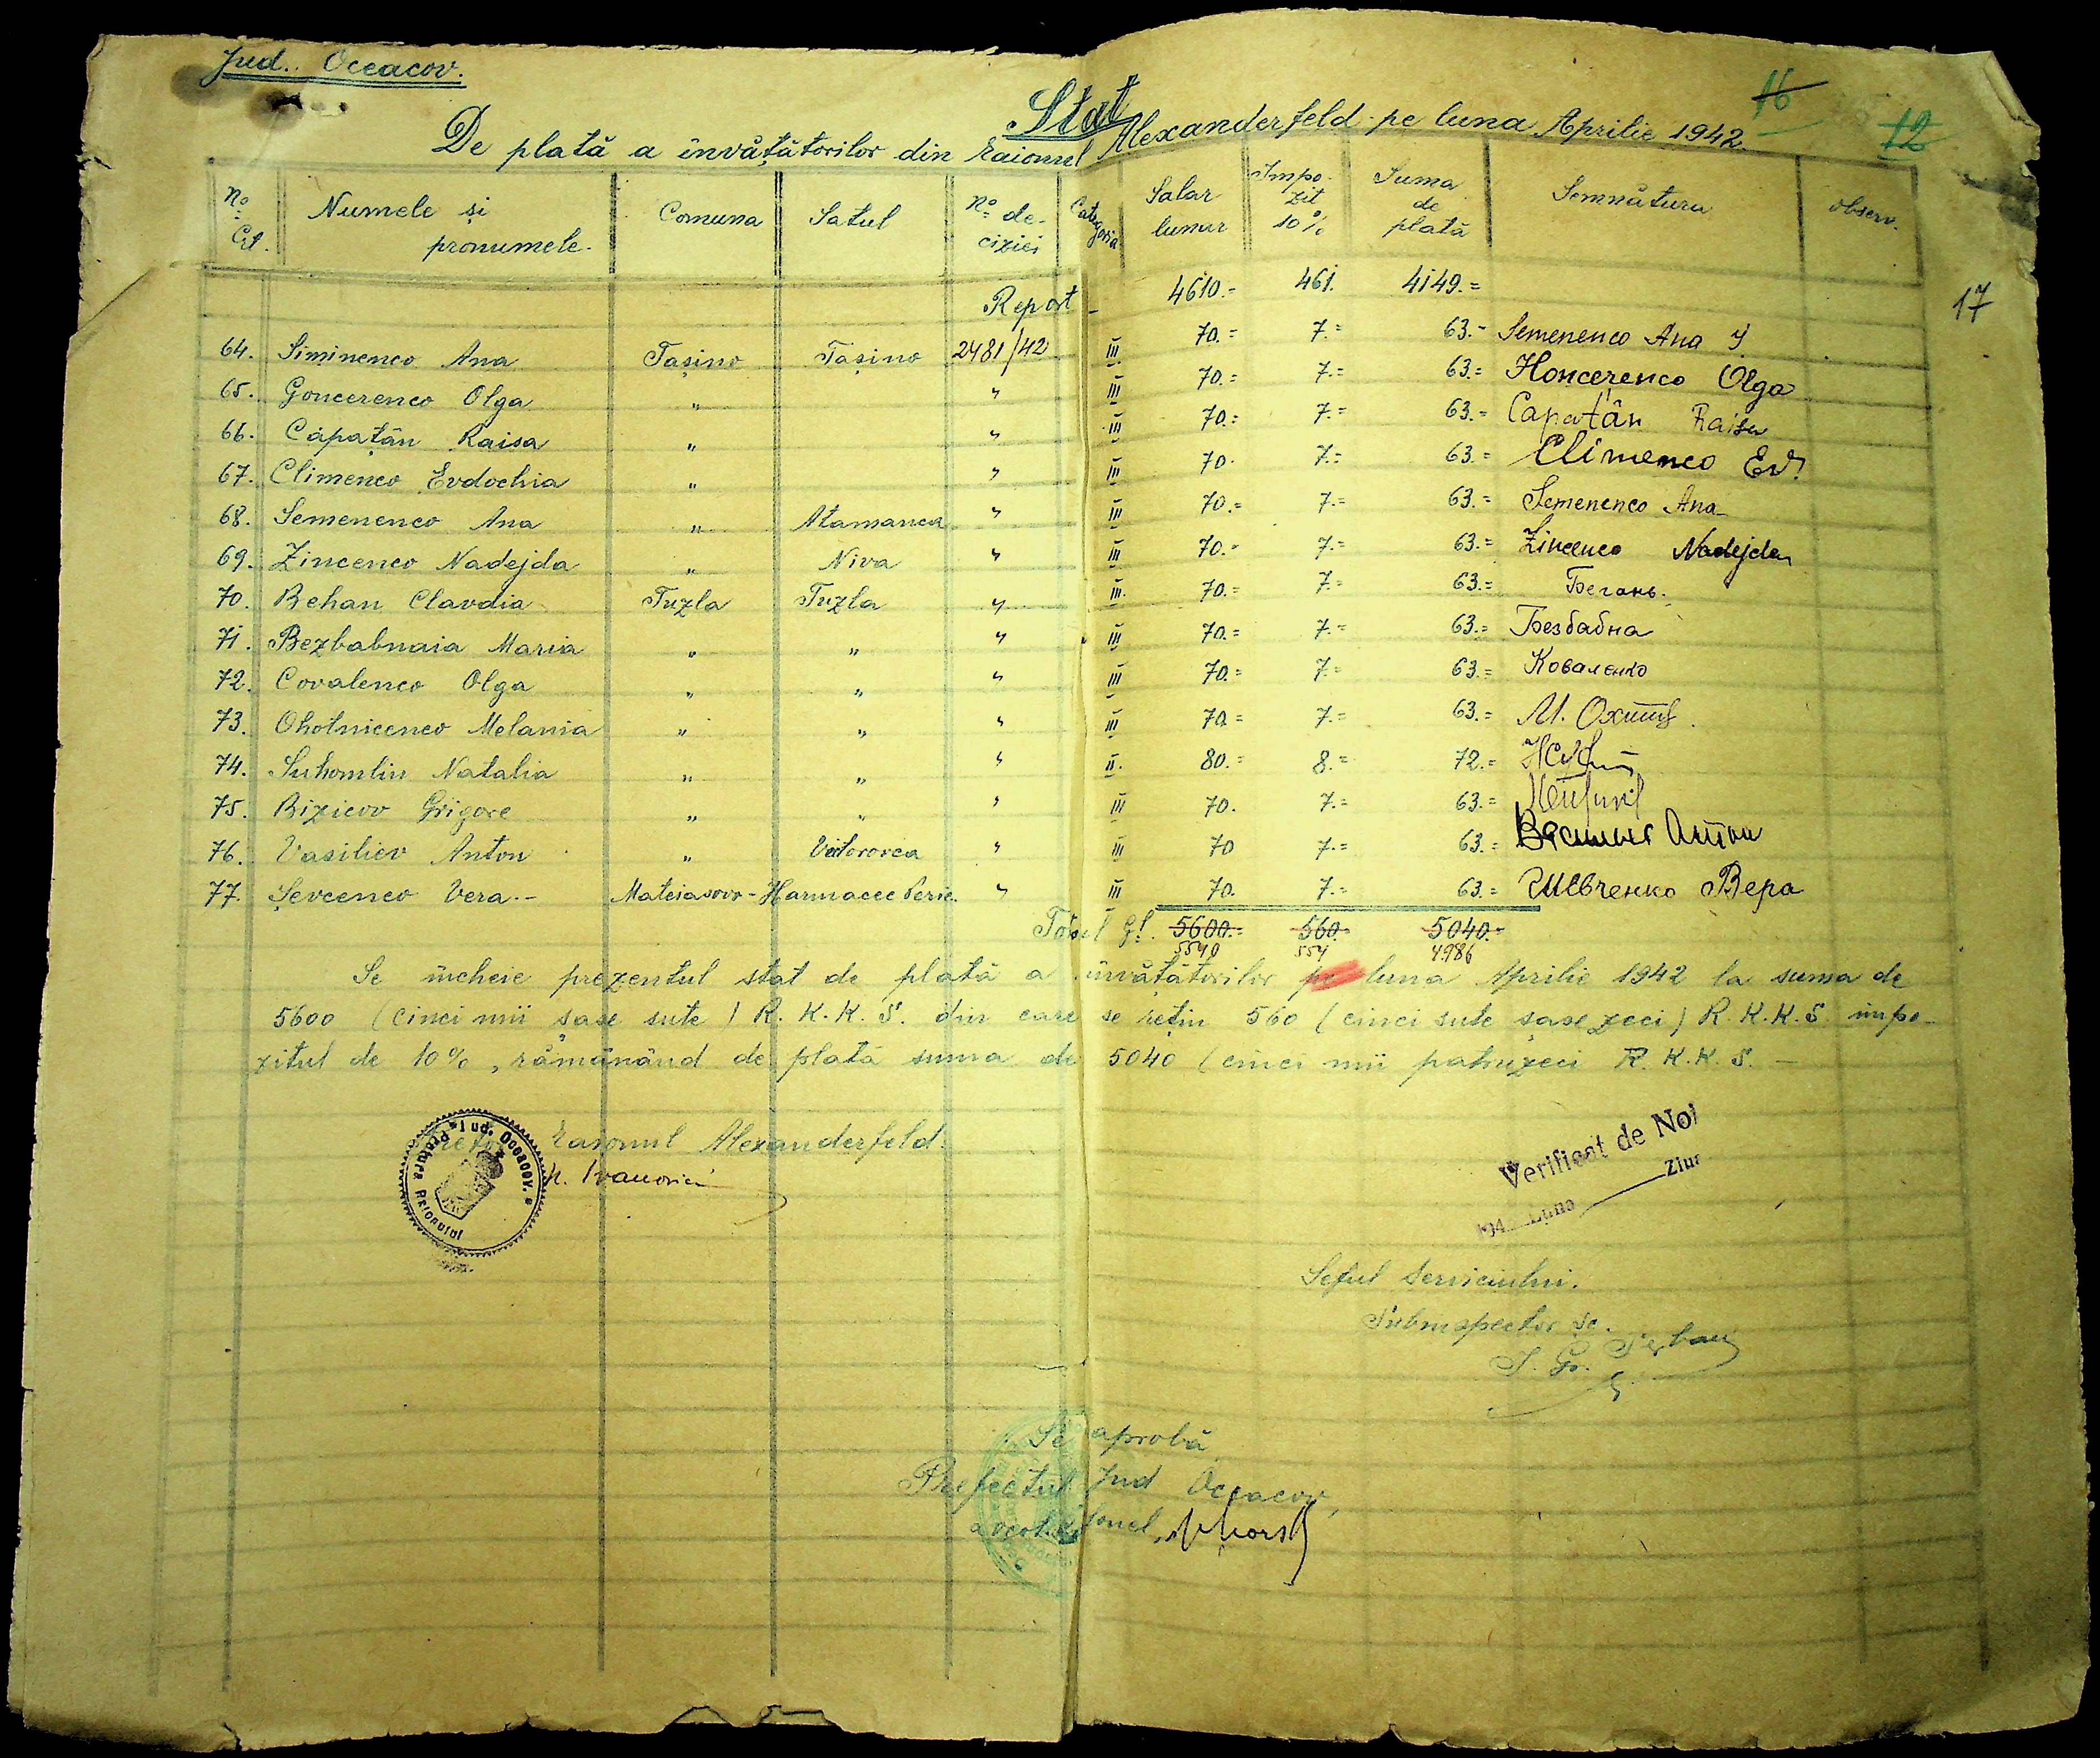 Jud. Oceacov.
16
12
Stat
De plată a învățătorilor din raionul Alexanderfeld pe luna Aprilie 1942.
No Crt. Numele și pronumele. Comuna Satul No deciziei Categoria Salar lunar Impozit 10% Suma de plată Semnătura observ.
17
Report - 4610.= 461. 4149.=
64. Siminenco Ana Tașino Tașino 2481/42 III 70.= 7.= 63.= Semenenco Ana
65. Goncerenco Olga " " III 70.= 7.= 63.= Honcerenco Olga
66. Căpațân Raisa " " III 70.= 7.= 63.= Capatân Raisa
67. Climenco Evdochia " " III 70. 7.= 63.= Climenco Ev.
68. Semenenco Ana " Atamanca " III 70.= 7.= 63.= Semenenco Ana
69. Zincenco Nadejda " Niva " III 70.= 7.= 63.= Zincenco Nadejda
70. Behan Clavdia Tuzla Tuzla " III. 70.= 7.= 63.= Бегань.
71. Bezbabnaia Maria " " " III 70.= 7.= 63.= Безбабна
72. Covalenco Olga " " " III 70.= 7.= 63.= Коваленко
73. Ohotnicenco Melania " " " III 70.= 7.= 63.= М.
74. Suhomlin Natalia " " " II. 80.= 8.= 72.=
75. Bizicov Grigore " " " III 70. 7.= 63.=
76. Vasiliev Anton " " III 70 7.= 63.= Антон
77. Șevcenco Vera.- Mateiasovo- " III 70. 7.= 63.= Шевченко Вера
Total Gl. 5600.= 560.= 5040.=
5540 554 4986
Se încheie prezentul stat de plată a învățătorilor pe luna Aprilie 1942 la suma de
5600 (cinci mii șase sute) R.K.K.S. din care se rețin 560 (cinci sute șase zeci) R.K.K.S. impo-
zitul de 10%, rămânând de plată suma de 5040 (cinci mii patruzeci R.K.K.S. -
Raionul Alexanderfeld.
Pretura Raionului
Jud. Oceacov.
Verificat de Noi
194 Luna Ziua
Șeful Serviciului.
Subinspector șc.
Se aprobă
Prefectul Jud Oceacov,